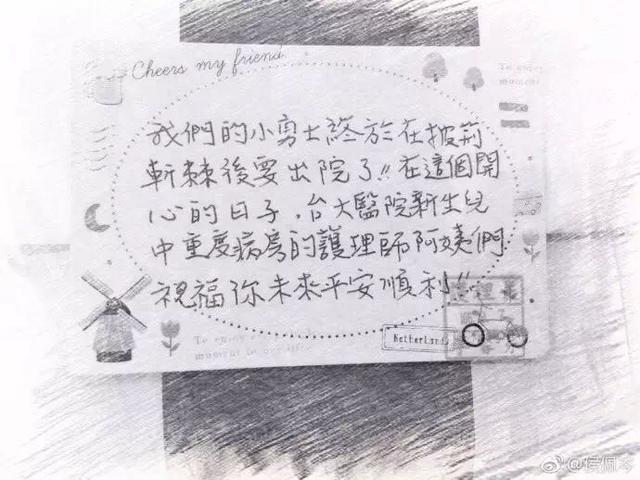 Cheers my friend
To enjoy
moment
我們的小勇士終於在披荊
斬棘後要出院了!!在這個開
心的日子,台大醫院新生兒
中重度病房的護理師阿姨們
祝福你未來平安順利!!
To enjoy
moment
Netherland
@侯佩岑